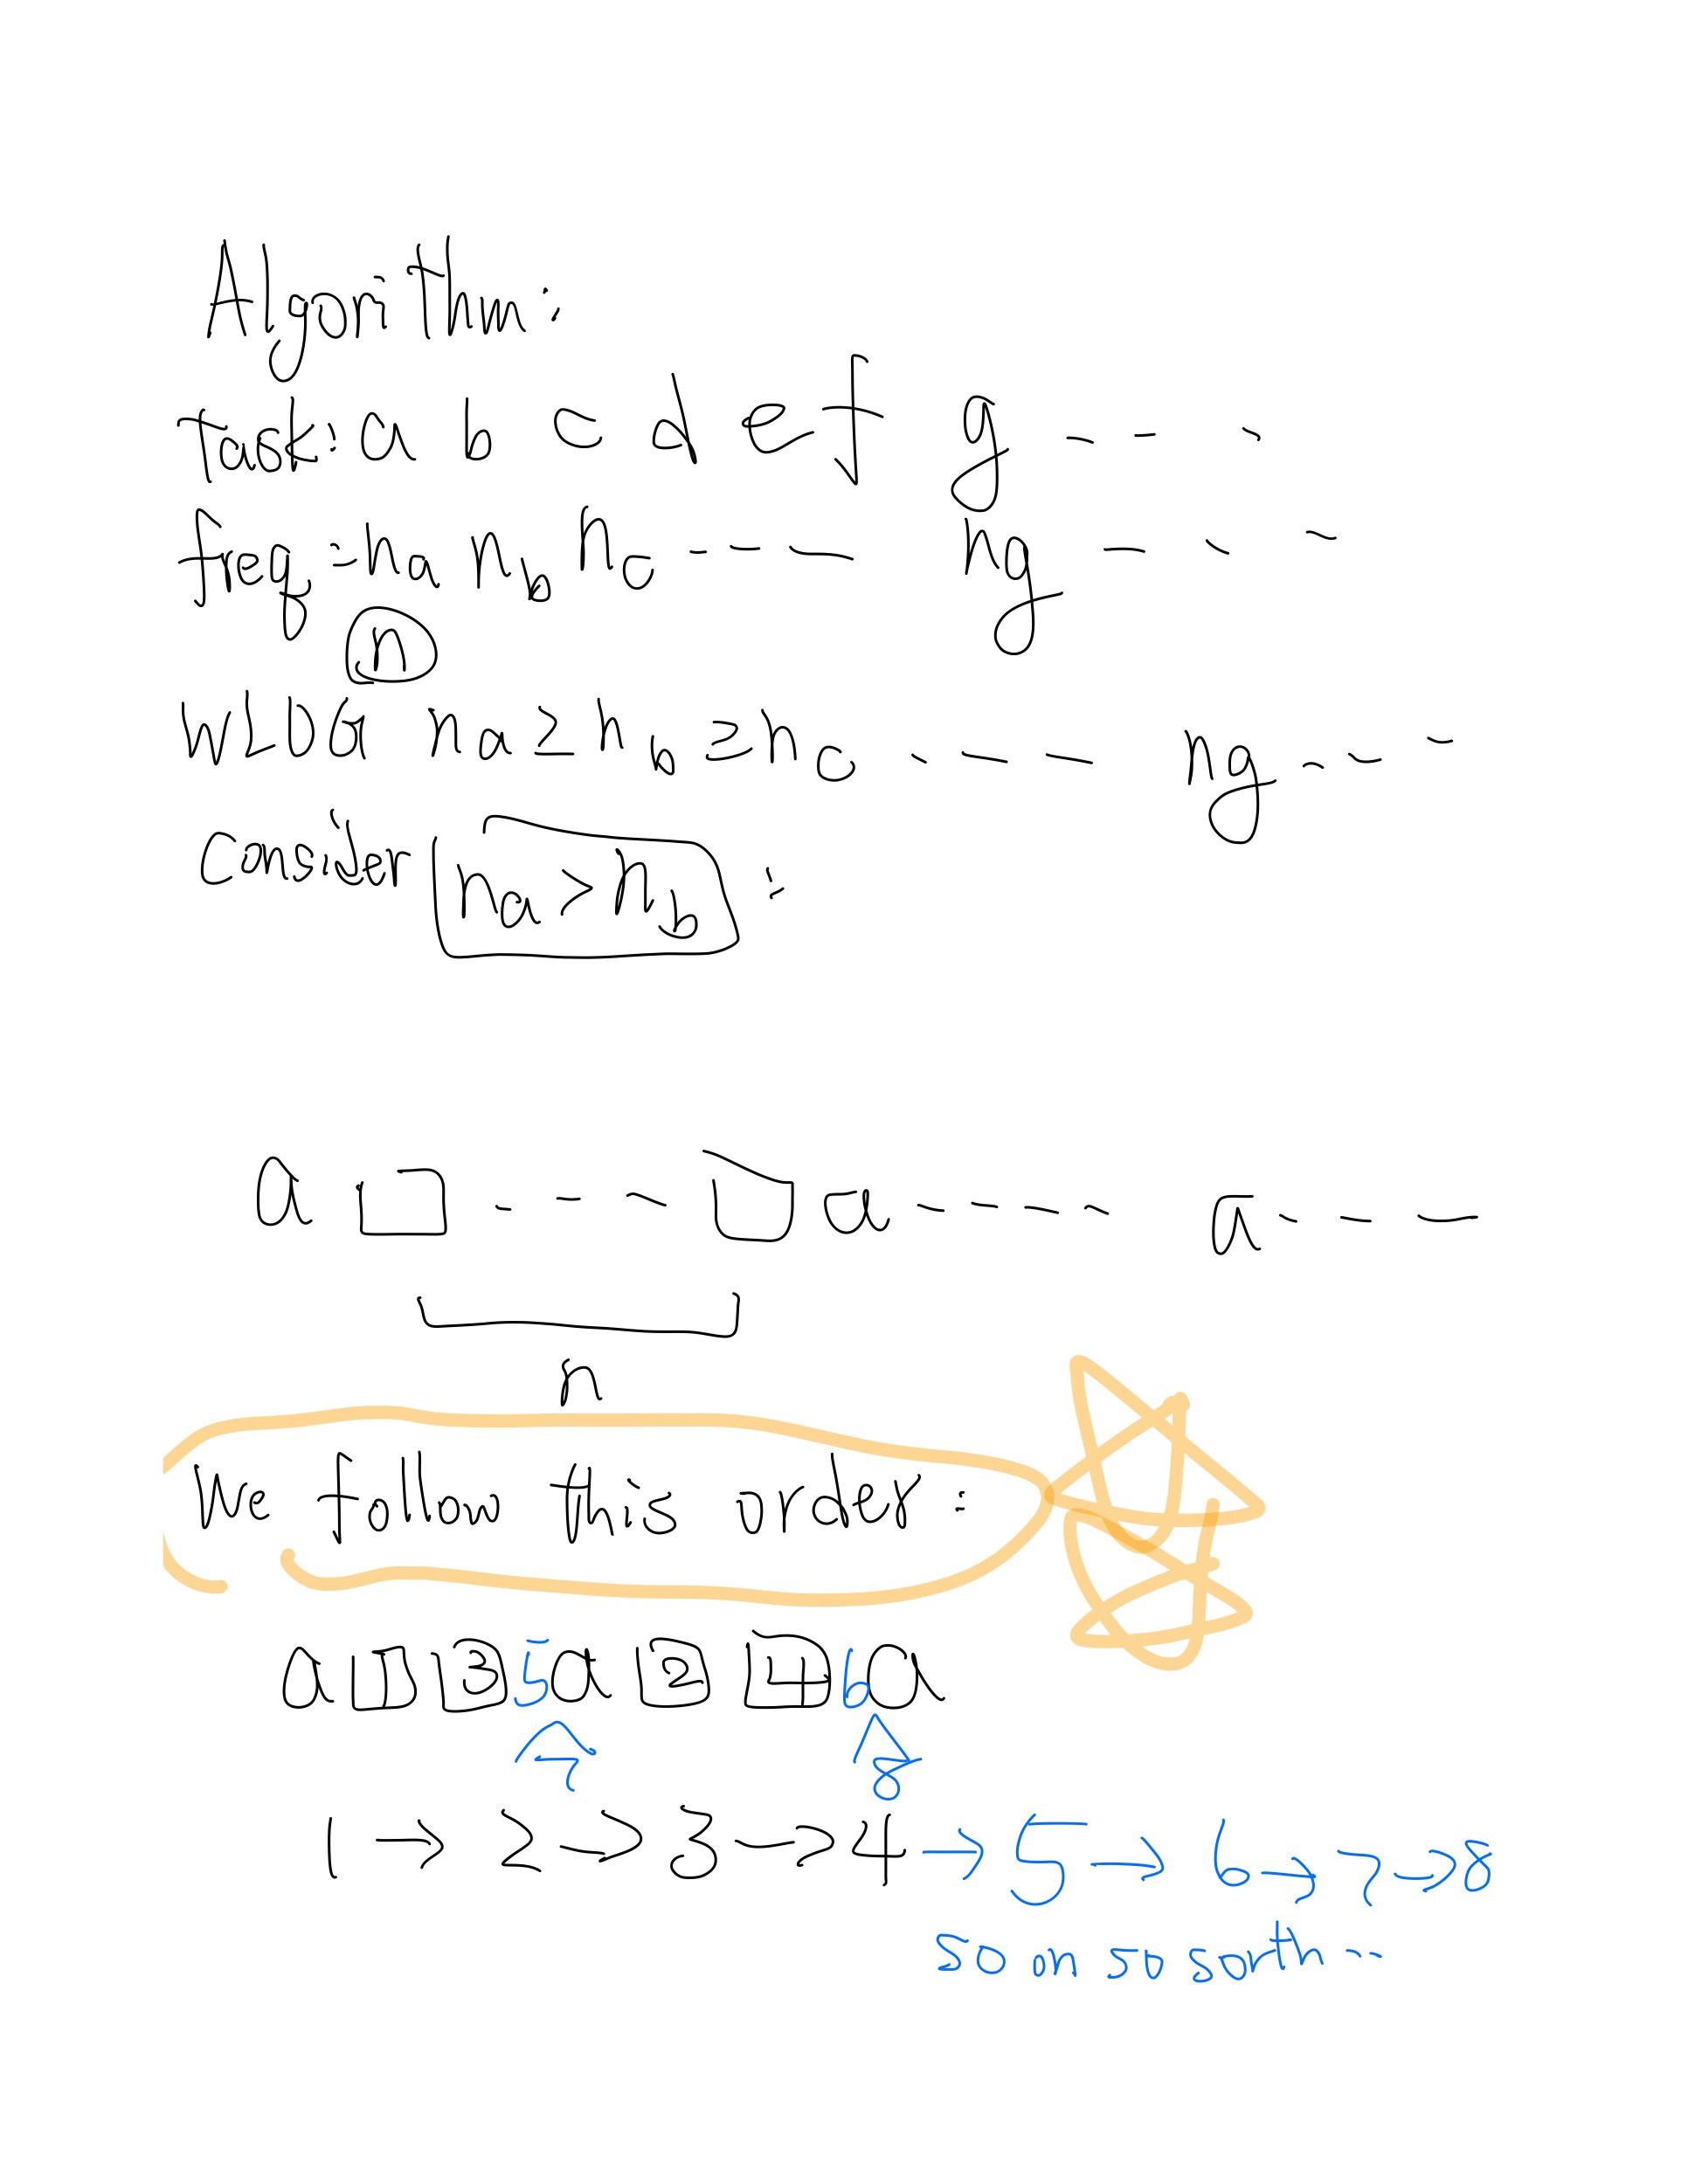 Algorithm:
Task: a b c d e f g - - -
freq: na nb nc - - - ng - - -
n
WLOG na ≥ nb ≥ nc - - - ng - - -
Consider na > nb :
a □ - - - □ a - - - - a - - -
n
We follow this order:
a 1 3 5 a 2 4 6 a
7 8
1 → 2 → 3 → 4 → 5 → 6 → 7 → 8
so on so sorth --